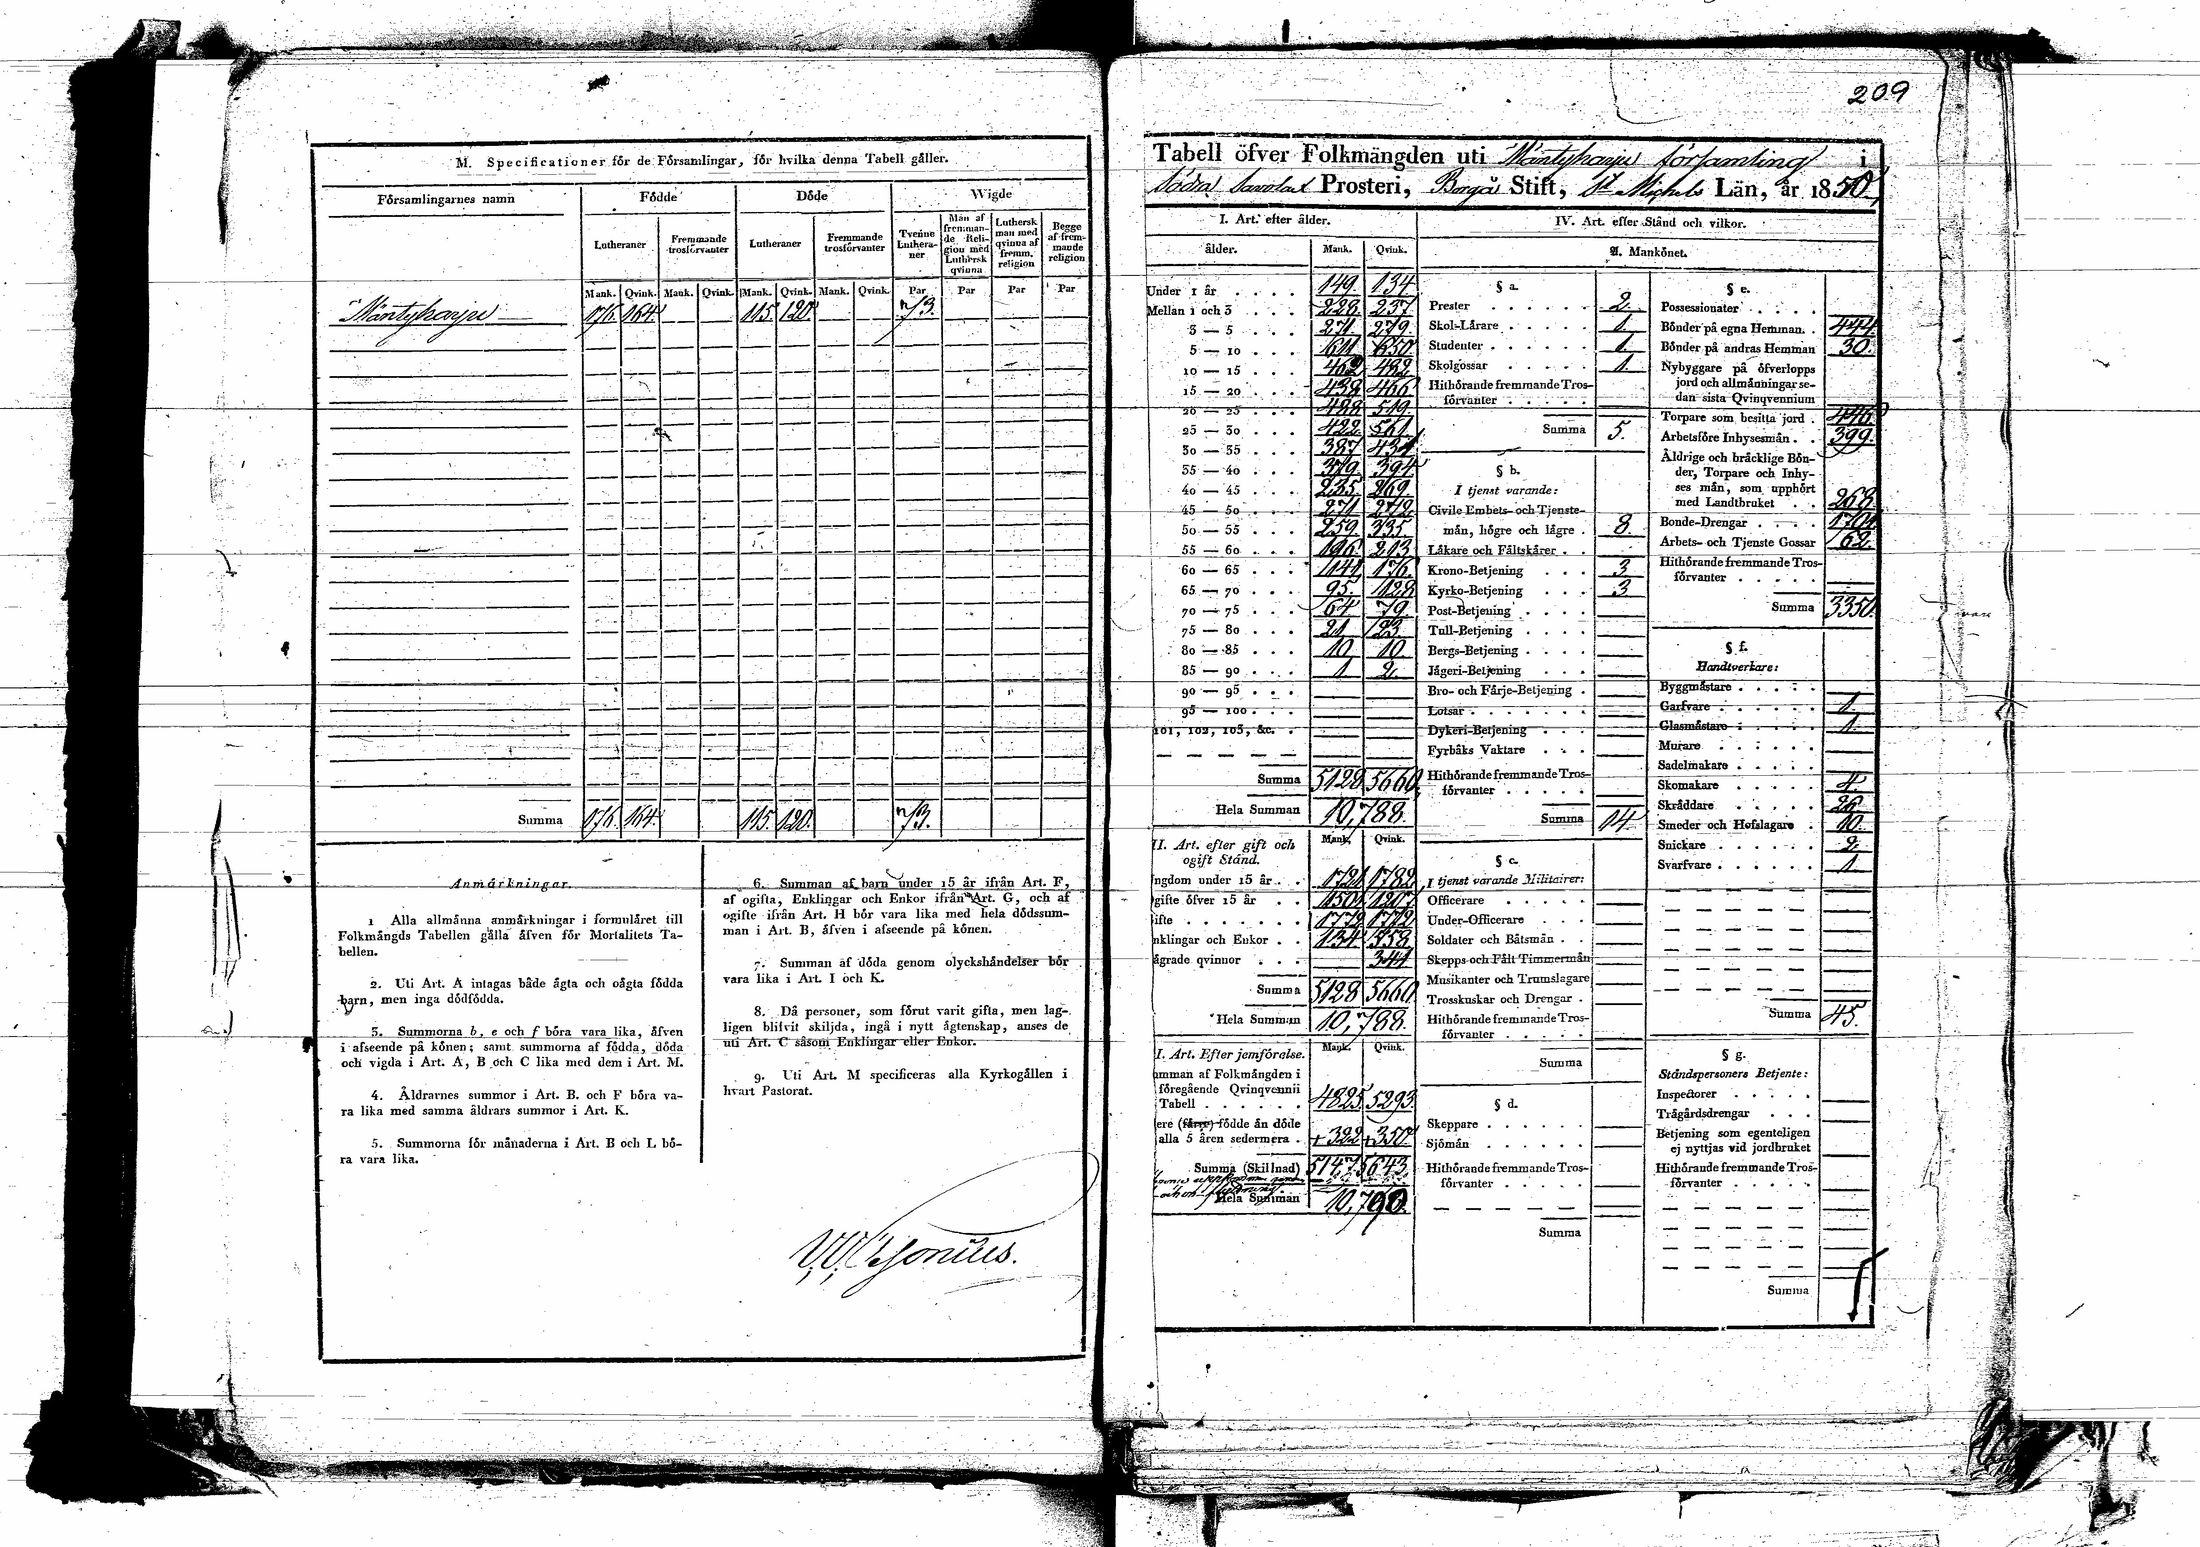 209
M. Specificationer för de Församlingar, för hvilka denna Tabell gäller.
Församlingarnes namn
Födde
Döde
Wigde
Lutheraner
Fremmande trosförvanter
Lutheraner
Fremmande trosförvanter
Tvenne Lutheraner
Man af fremmande Religion med Luthersk qvinna
Luthersk man med qvinna af fremm. religion
Begge af fremmande religion
Mank. Qvink. Mank. Qvink. Mank. Qvink. Mank. Qvink. Par Par Par Par
Mäntyharju 176. 164. 115. 120. 73.
Summa 176. 164. 115. 120. 73.
Anmärkningar.
1 Alla allmänna anmärkningar i formuläret till
Folkmängds Tabellen gälla äfven för Mortalitets Ta-
bellen.
2. Uti Art. A intagas både ägta och oägta födda
barn, men inga dödfödda.
3. Summorna b, e och f böra vara lika, äfven
i afseende på könen; samt summorna af födda, döda
och vigda i Art. A, B och C lika med dem i Art. M.
4. Åldrarnes summor i Art. B. och F böra va-
ra lika med samma åldrars summor i Art. K.
5. Summorna för månaderna i Art. B och L bö-
ra vara lika.
6. Summan af barn under 15 år ifrån Art. F,
af ogifta, Enklingar och Enkor ifrån Art. G, och af
ogifte ifrån Art. H bör vara lika med hela dödssum-
man i Art. B, äfven i afseende på könen.
7. Summan af döda genom olyckshändelser bör
vara lika i Art. I och K.
8. Då personer, som förut varit gifta, men lag-
ligen blifvit skiljda, ingå i nytt ägtenskap, anses de
uti Art. C såsom Enklingar eller Enkor.
9. Uti Art. M specificeras alla Kyrkogällen i
hvart Pastorat.
Tabell öfver Folkmängden uti Mäntyharju församling i
Södra Savolax Prosteri, Borgå Stift, St Michels Län, år 1850.
I. Art. efter ålder.
ålder. Mank. Qvink.
Under 1 år . . . . 149. 134.
Mellan 1 och 3 . . . 228. 237.
3 — 5 . . . 271. 279.
5 — 10 . . . 611. 650.
10 — 15 . . . 462. 482.
15 — 20 . . . 438. 466.
20 — 25 . . . 488. 519.
25 — 30 . . . 422. 561.
30 — 35 . . . 387. 431.
35 — 40 . . . 379. 394.
40 — 45 . . . 235. 269.
45 — 50 . . . 271. 272.
50 — 55 . . . 259. 335.
55 — 60 . . . 196. 213.
60 — 65 . . . 141. 176.
65 — 70 . . . 95. 128.
70 — 75 . . . 64. 79.
75 — 80 . . . 21. 23.
80 — 85 . . . 10. 10.
85 — 90 . . . 1. 2.
90 — 95 . . .
95 — 100 . . .
101, 102, 103, &c. .
Summa 5128. 5660.
Hela Summan 10,788.
II. Art. efter gift och Mank. Qvink.
ogift Stånd.
ngdom under 15 år . . 1721. 1782.
gifte öfver 15 år . . 1501. 1207.
ifte . . . . . . 1772. 1772.
nklingar och Enkor . . 134. 558.
ägrade qvinnor . . . 341.
Summa 5128. 5660.
Hela Summan 10,788.
I. Art. Efter jemförelse. Mank. Qvink.
omman af Folkmängden i
föregående Qvinqvennii
Tabell . . . . . . 4825. 5293.
ere (färre) födde än döde
alla 5 åren sedermera . +322. +350.
Summa (Skillnad) 5147. 5643.
Hela Summan 10,790.
IV. Art. efter Stånd och vilkor.
A. Mankönet.
§ a.
Prester . . . . . . 2.
Skol-Lärare . . . . . 1.
Studenter . . . . . . 1.
Skolgossar . . . . . 1.
Hithörande fremmande Tros-
förvanter . . . . .
Summa 5.
§ b.
I tjenst varande:
Civile Embets- och Tjenste-
män, högre och lägre . 8.
Läkare och Fältskärer . .
Krono-Betjening . . . 3.
Kyrko-Betjening . . . 3.
Post-Betjening . . . .
Tull-Betjening . . . .
Bergs-Betjening . . . .
Jägeri-Betjening . . .
Bro- och Färje-Betjening .
Lotsar . . . . . . .
Dykeri-Betjening . . .
Fyrbåks Vaktare . . .
Hithörande fremmande Tros-
förvanter . . . . .
Summa 14.
§ c.
I tjenst varande Militairer:
Officerare . . . . .
Under-Officerare . . .
Soldater och Båtsmän . .
Skepps och Fält Timmermän
Musikanter och Trumslagare
Trosskuskar och Drengar .
Hithörande fremmande Tros-
förvanter . . . .
Summa
§ d.
Skeppare . . . . . .
Sjömän . . . . . .
Hithörande fremmande Tros-
förvanter . . . . .
Summa
§ e.
Possessionater . . . .
Bönder på egna Hemman. . 444.
Bönder på andras Hemman 30.
Nybyggare på öfverlopps
jord och allmänningar se-
dan sista Qvinqvennium
Torpare som besitta jord . 446.
Arbetsföre Inhysesmän . . 399.
Åldrige och bräcklige Bön-
der, Torpare och Inhy-
ses män, som upphört
med Landtbruket . . 268.
Bonde-Drengar . . . . 1701.
Arbets- och Tjenste Gossar 62.
Hithörande fremmande Tros-
förvanter . . . . .
Summa 3350.
§ f.
Handtverkare:
Byggmästare . . . . .
Garfvare . . . . . . 1.
Glasmästare . . . . . 1.
Murare . . . . . .
Sadelmakare . . . . .
Skomakare . . . . . 4.
Skräddare . . . . . 26.
Smeder och Hofslagare . 10.
Snickare . . . . . . 2.
Svarfvare . . . . . . 1.
Summa 45.
§ g.
Ståndspersoners Betjente:
Inspectorer . . . . .
Trägårdsdrengar . . .
Betjening som egenteligen
ej nyttjas vid jordbruket
Hithörande fremmande Tros-
förvanter . . . .
Summa